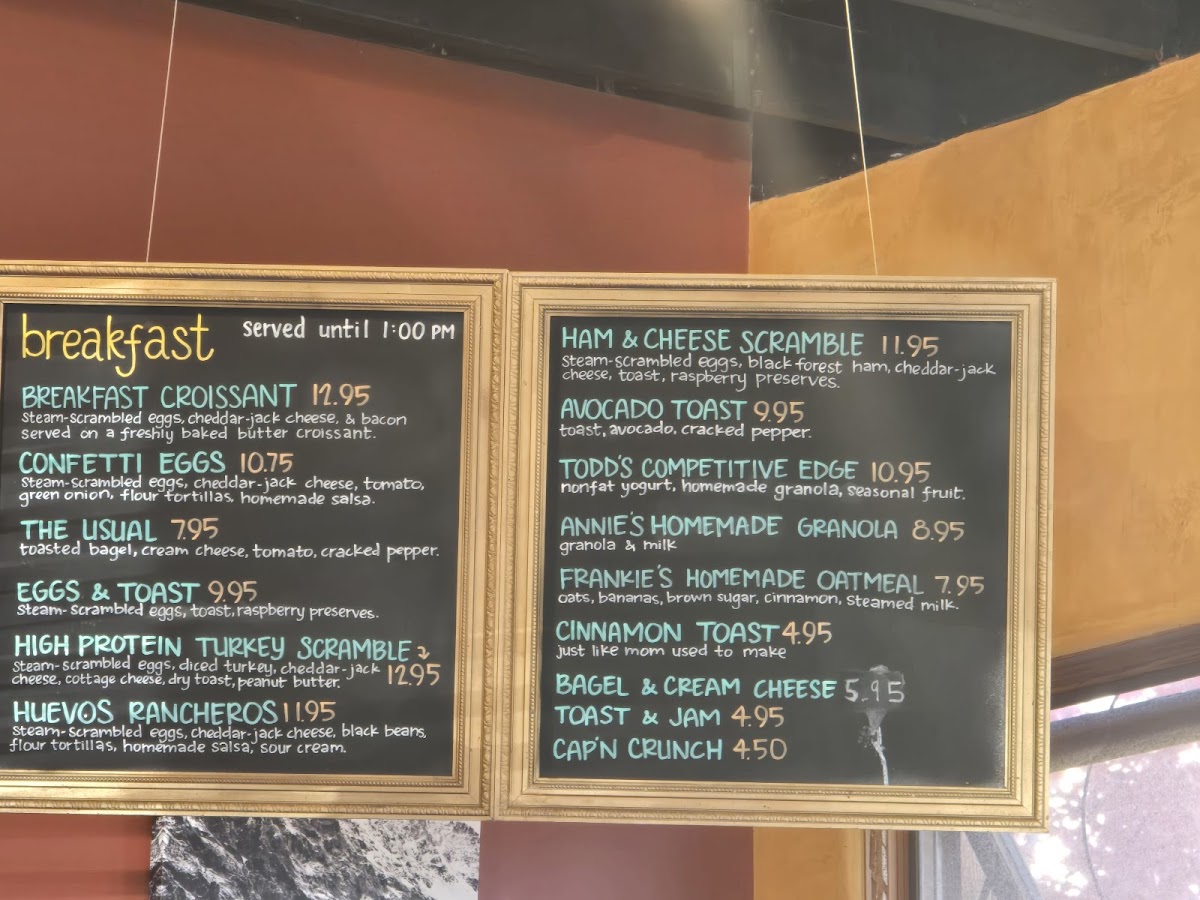 breakfast served until 1:00 PM
BREAKFAST CROISSANT 12.95
Steam-scrambled eggs, cheddar-jack cheese, & bacon
served on a freshly baked butter croissant.
CONFETTI EGGS 10.75
Steam-scrambled eggs, cheddar-jack cheese, tomato,
green onion, flour tortillas, homemade salsa.
THE USUAL 7.95
toasted bagel, cream cheese, tomato, cracked pepper.
EGGS & TOAST 9.95
Steam-scrambled eggs, toast, raspberry preserves.
HIGH PROTEIN TURKEY SCRAMBLE
Steam-scrambled eggs, diced turkey, cheddar-jack 12.95
cheese, cottage cheese, dry toast, peanut butter.
HUEVOS RANCHEROS 11.95
Steam-scrambled eggs, cheddar-jack cheese, black beans,
flour tortillas, homemade salsa, sour cream.
HAM & CHEESE SCRAMBLE 11.95
Steam-scrambled eggs, black forest ham, cheddar-jack
cheese, toast, raspberry preserves.
AVOCADO TOAST 9.95
toast, avocado, cracked pepper.
TODD'S COMPETITIVE EDGE 10.95
nonfat yogurt, homemade granola, seasonal fruit.
ANNIE'S HOMEMADE GRANOLA 8.95
granola & milk
FRANKIE'S HOMEMADE OATMEAL 7.95
oats, bananas, brown sugar, cinnamon, steamed milk.
CINNAMON TOAST 4.95
just like mom used to make
BAGEL & CREAM CHEESE 5.95
TOAST & JAM 4.95
CAP'N CRUNCH 4.50